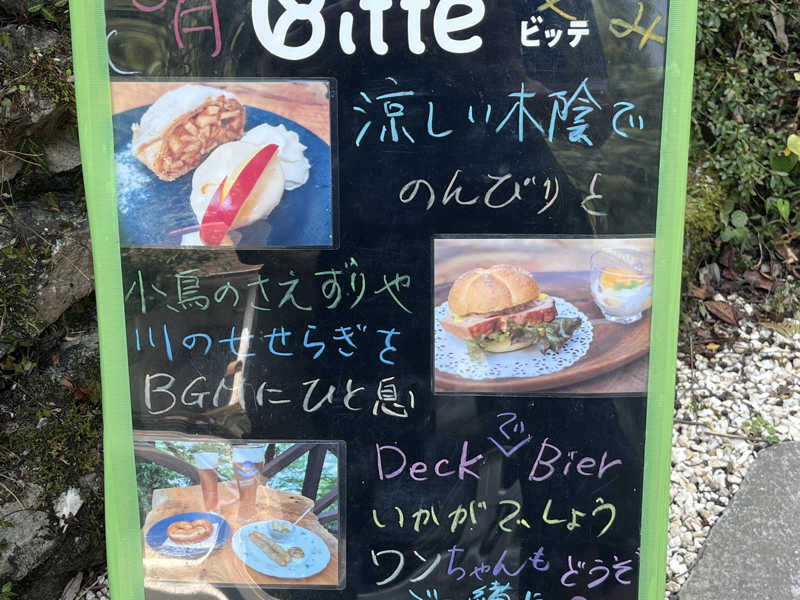 月 Bitte ビッテ
涼しい木陰で
のんびりと
小鳥のさえずりや
川のせせらぎを
BGMにひと息
Deck で Bier
いかがでしょう
ワンちゃんもどうぞ
ご一緒に